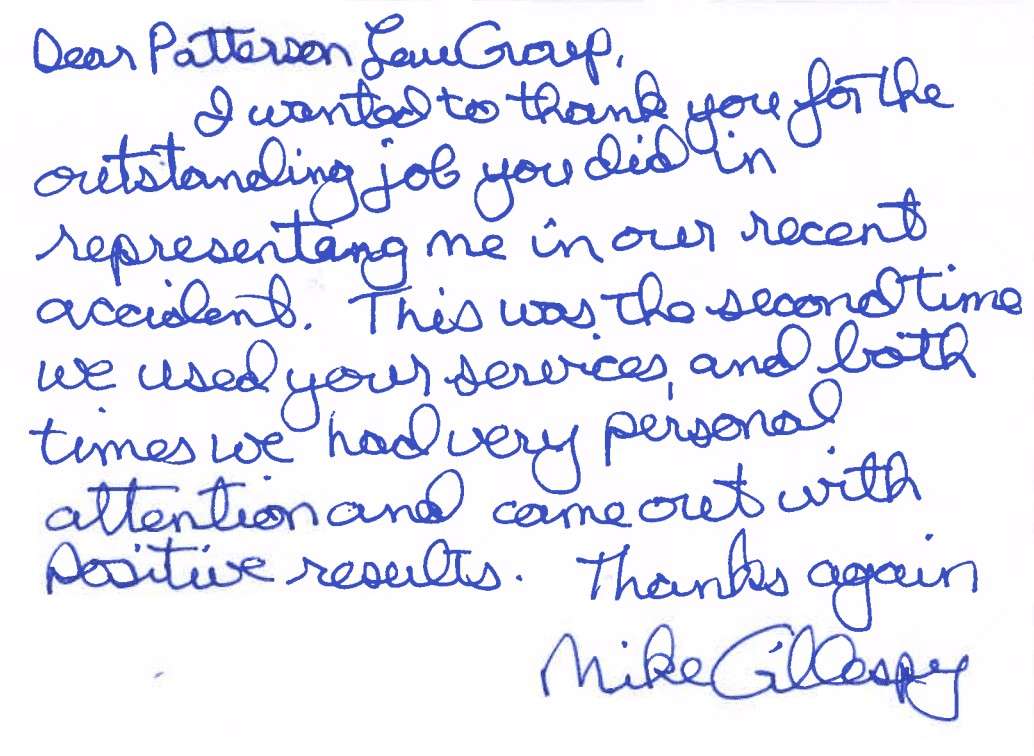 Dear Patterson Law Group,
I wanted to thank you for the
outstanding job you did in
representing me in our recent
accident. This was the second time
we used your services, and both
times we had very personal
attention and came out with
positive results. Thanks again
Mike Gillespy